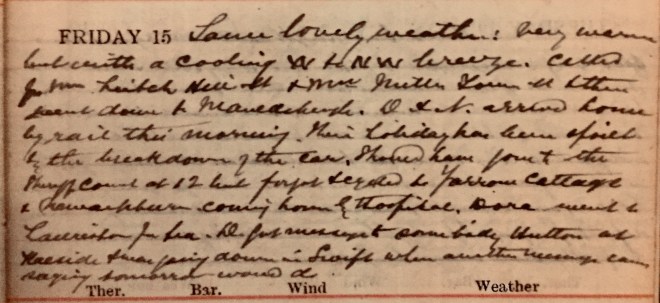 FRIDAY 15 Same lovely weather: Very warm
but with a cooling W to NW breeze. Called
for Mrs Hill St & Mrs Miller Town St & then
went down to . D & N. arrived home
by rail this morning. Their holiday has been spoilt
by the breakdown of the car. Should have gone to the
Sheriff Court at 12 but forgot & cycled to Yarrow Cottage
& coming home by Hospital. Dora went to
Lauriston for tea. D. got message to somebody Hutton at
& was going down in Swift when another message came
saying tomorrow would do
Ther. Bar. Wind Weather